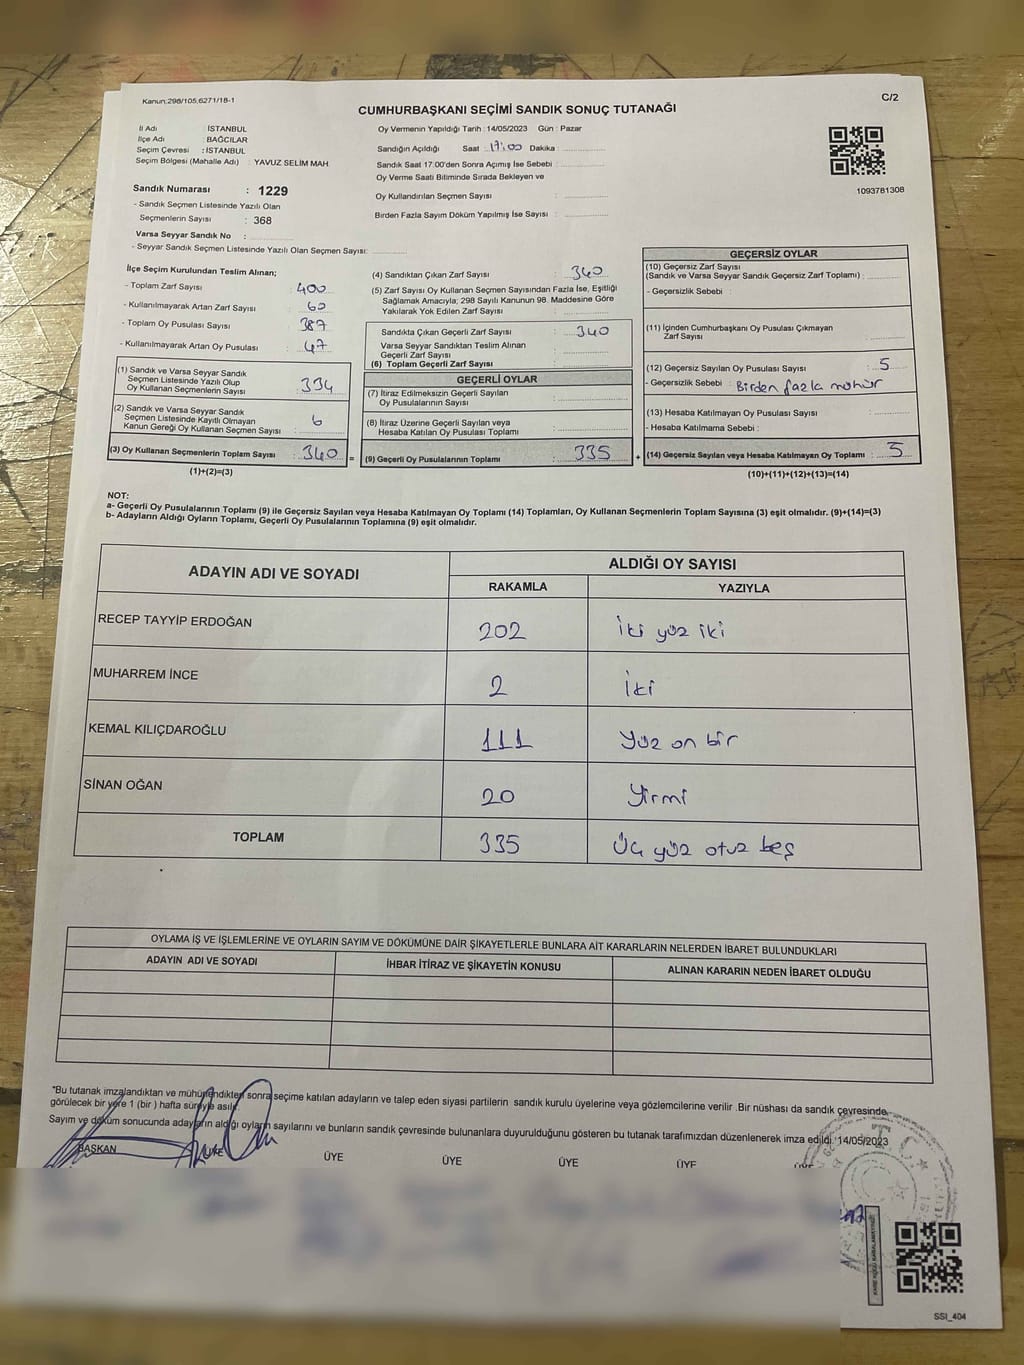 Kanun;298/105,6271/18-1
C/2
CUMHURBAŞKANI SEÇİMİ SANDIK SONUÇ TUTANAĞI
İl Adı : İSTANBUL
İlçe Adı : BAĞCILAR
Seçim Çevresi : İSTANBUL
Seçim Bölgesi (Mahalle Adı) : YAVUZ SELİM MAH.
Oy Vermenin Yapıldığı Tarih : 14/05/2023 Gün : Pazar
Sandığın Açıldığı Saat 17:00 Dakika :
Sandık Saat 17:00'den Sonra Açımış İse Sebebi :
Oy Verme Saati Bitiminde Sırada Bekleyen ve
Oy Kullandırılan Seçmen Sayısı :
Birden Fazla Sayım Döküm Yapılmış İse Sayısı :
1093781308
Sandık Numarası : 1229
- Sandık Seçmen Listesinde Yazılı Olan
Seçmenlerin Sayısı : 368
Varsa Seyyar Sandık No :
- Seyyar Sandık Seçmen Listesinde Yazılı Olan Seçmen Sayısı:
İlçe Seçim Kurulundan Teslim Alınan;
- Toplam Zarf Sayısı : 400
- Kullanılmayarak Artan Zarf Sayısı : 60
- Toplam Oy Pusulası Sayısı : 387
- Kullanılmayarak Artan Oy Pusulası : 47
(1) Sandık ve Varsa Seyyar Sandık
Seçmen Listesinde Yazılı Olup
Oy Kullanan Seçmenlerin Sayısı : 334
(2) Sandık ve Varsa Seyyar Sandık
Seçmen Listesinde Kayıtlı Olmayan
Kanun Gereği Oy Kullanan Seçmen Sayısı : 6
(3) Oy Kullanan Seçmenlerin Toplam Sayısı : 340
(1)+(2)=(3)
(4) Sandıktan Çıkan Zarf Sayısı : 340
(5) Zarf Sayısı Oy Kullanan Seçmen Sayısından Fazla İse, Eşitliği
Sağlamak Amacıyla; 298 Sayılı Kanunun 98. Maddesine Göre
Yakılarak Yok Edilen Zarf Sayısı :
Sandıkta Çıkan Geçerli Zarf Sayısı : 340
Varsa Seyyar Sandıktan Teslim Alınan
Geçerli Zarf Sayısı :
(6) Toplam Geçerli Zarf Sayısı :
GEÇERLİ OYLAR
(7) İtiraz Edilmeksizin Geçerli Sayılan
Oy Pusulalarının Sayısı :
(8) İtiraz Üzerine Geçerli Sayılan veya
Hesaba Katılan Oy Pusulası Toplamı :
= (9) Geçerli Oy Pusulalarının Toplamı : 335 +
GEÇERSİZ OYLAR
(10) Geçersiz Zarf Sayısı
(Sandık ve Varsa Seyyar Sandık Geçersiz Zarf Toplamı) :
- Geçersizlik Sebebi :
(11) İçinden Cumhurbaşkanı Oy Pusulası Çıkmayan
Zarf Sayısı :
(12) Geçersiz Sayılan Oy Pusulası Sayısı : 5
- Geçersizlik Sebebi : Birden fazla mühür
(13) Hesaba Katılmayan Oy Pusulası Sayısı :
- Hesaba Katılmama Sebebi :
(14) Geçersiz Sayılan veya Hesaba Katılmayan Oy Toplamı : 5
(10)+(11)+(12)+(13)=(14)
NOT:
a- Geçerli Oy Pusulalarının Toplamı (9) ile Geçersiz Sayılan veya Hesaba Katılmayan Oy Toplamı (14) Toplamları, Oy Kullanan Seçmenlerin Toplam Sayısına (3) eşit olmalıdır. (9)+(14)=(3)
b- Adayların Aldığı Oyların Toplamı, Geçerli Oy Pusulalarının Toplamına (9) eşit olmalıdır.
ADAYIN ADI VE SOYADI
ALDIĞI OY SAYISI
RAKAMLA YAZIYLA
RECEP TAYYİP ERDOĞAN 202 iki yüz iki
MUHARREM İNCE 2 iki
KEMAL KILIÇDAROĞLU 111 Yüz on bir
SİNAN OĞAN 20 Yirmi
TOPLAM 335 Üç yüz otuz beş
OYLAMA İŞ VE İŞLEMLERİNE VE OYLARIN SAYIM VE DÖKÜMÜNE DAİR ŞİKAYETLERLE BUNLARA AİT KARARLARIN NELERDEN İBARET BULUNDUKLARI
ADAYIN ADI VE SOYADI İHBAR İTİRAZ VE ŞİKAYETİN KONUSU ALINAN KARARIN NEDEN İBARET OLDUĞU
"Bu tutanak imzalandıktan ve mühürlendikten sonra seçime katılan adayların ve talep eden siyasi partilerin sandık kurulu üyelerine veya gözlemcilerine verilir .Bir nüshası da sandık çevresinde
görülecek bir yere 1 (bir ) hafta süreyle asılır.
Sayım ve döküm sonucunda adayların aldığı oyların sayılarını ve bunların sandık çevresinde bulunanlara duyurulduğunu gösteren bu tutanak tarafımızdan düzenlenerek imza edildi. 14/05/2023
BAŞKAN ÜYE ÜYE ÜYE ÜYE ÜYE ÜYE
T.C.
SSI_404